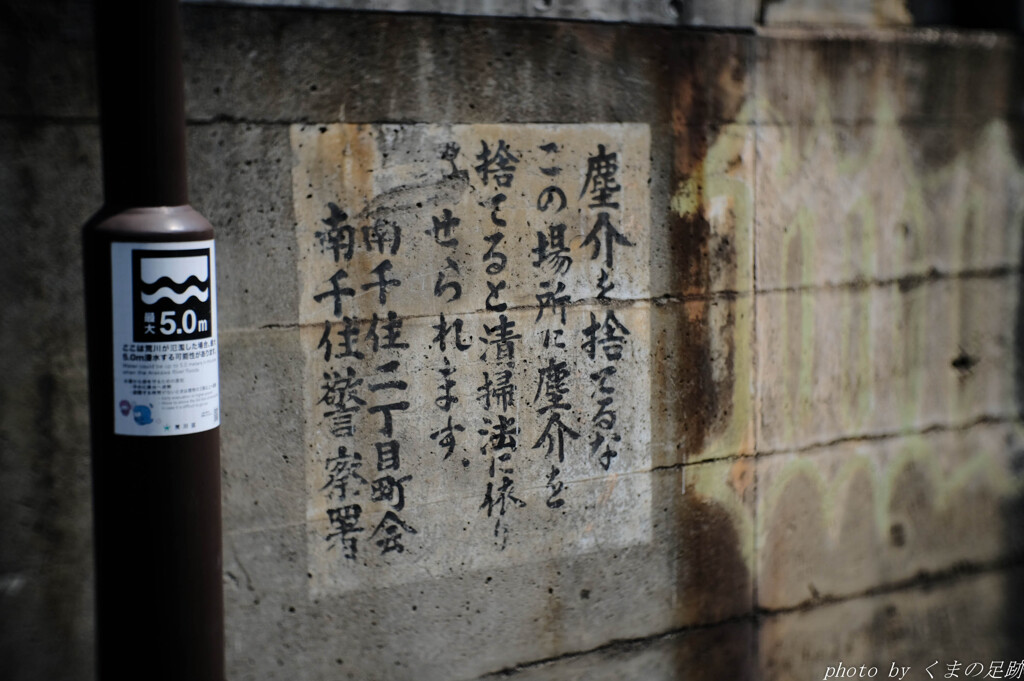 塵介を捨てるな
この場所に塵介を
捨てると清掃法に依り
せられます。
南千住二丁目町会
南千住警察署
最大 5.0m
ここは荒川が氾濫した場合、最大
5.0m浸水する可能性があります。
photo by くまの足跡